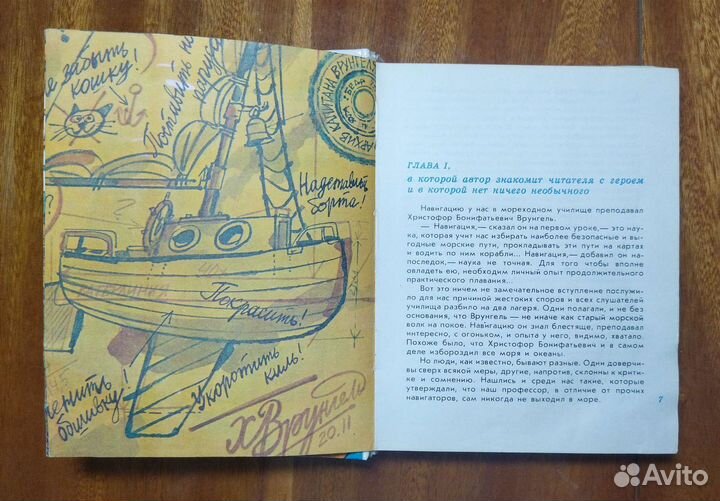 не забыть
кошку!
Поставить но
Надёжный
борта!
Покрасить!
Укоротить
киль!
обшивку!
Х Врунгель
20.11
АРХИВ КАПИТАНА ВРУНГЕЛЯ
БЕДА
ГЛАВА I,
в которой автор знакомит читателя с героем
и в которой нет ничего необычного
Навигацию у нас в мореходном училище преподавал
Христофор Бонифатьевич Врунгель.
— Навигация,— сказал он на первом уроке,— это нау-
ка, которая учит нас избирать наиболее безопасные и вы-
годные морские пути, прокладывать эти пути на картах
и водить по ним корабли... Навигация,— добавил он на-
последок,— наука не точная. Для того чтобы вполне
овладеть ею, необходим личный опыт продолжительного
практического плавания...
Вот это ничем не замечательное вступление послужи-
ло для нас причиной жестоких споров и всех слушателей
училища разбило на два лагеря. Одни полагали, и не без
основания, что Врунгель — не иначе как старый морской
волк на покое. Навигацию он знал блестяще, преподавал
интересно, с огоньком, и опыта у него, видимо, хватало.
Похоже было, что Христофор Бонифатьевич и в самом
деле избороздил все моря и океаны.
Но люди, как известно, бывают разные. Одни доверчи-
вы сверх всякой меры, другие, напротив, склонны к крити-
ке и сомнению. Нашлись и среди нас такие, которые
утверждали, что наш профессор, в отличие от прочих
навигаторов, сам никогда не выходил в море.
7
Avito